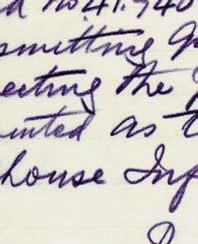 d no. 41.940
smitting
ecting the
inted as t
house Insp